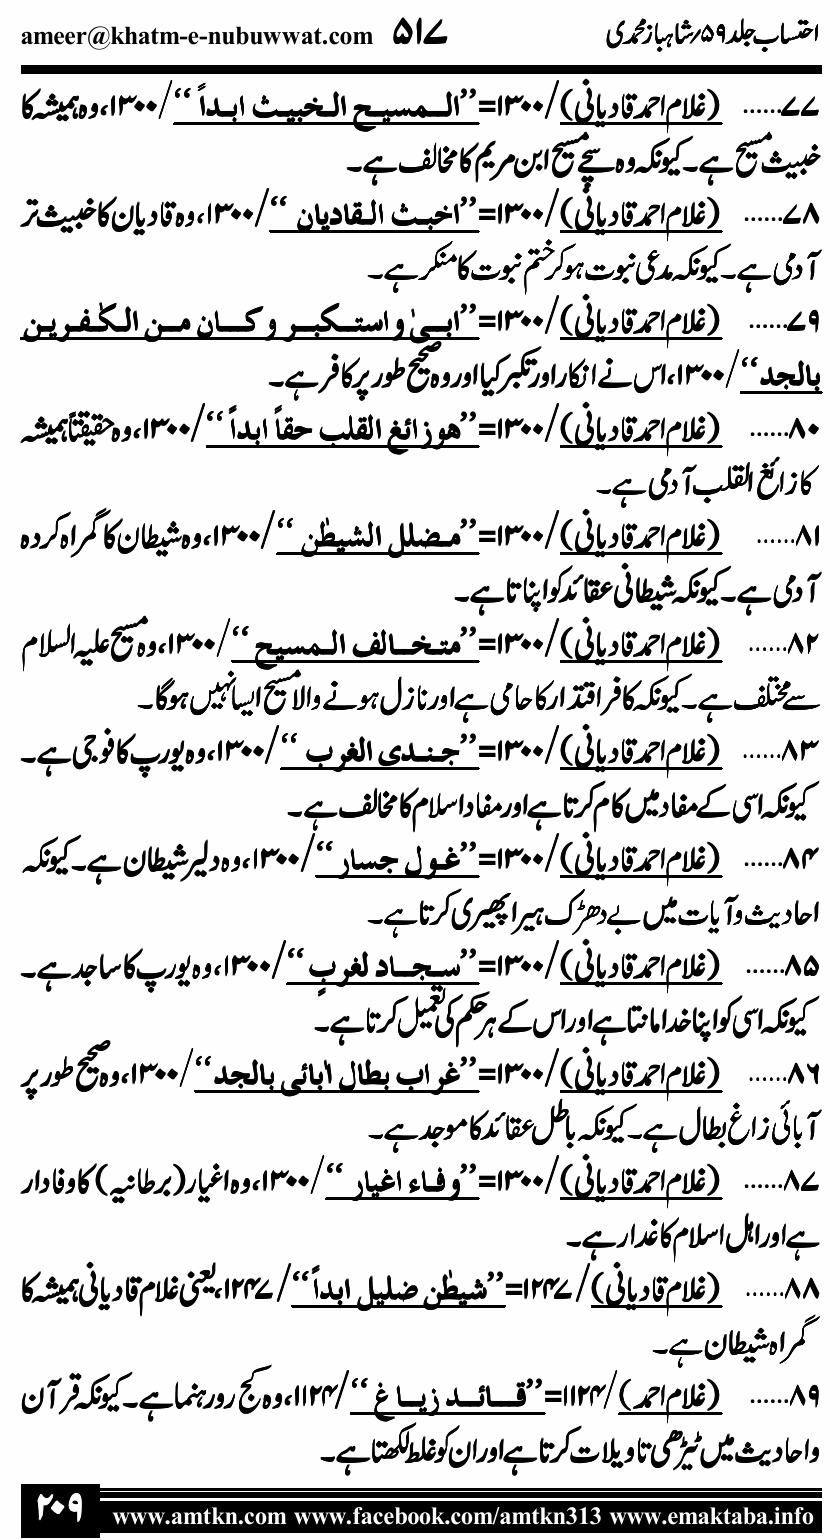 ameer@khatm-e-nubuwwat.com ۵۱۷ احتساب جلد ۵۹؍شاہباز محمدی
۷۷...... (غلام احمد قادیانی)/۱۳۰۰=”المسیح الخبیث ابداً“/۱۳۰۰، وہ ہمیشہ کا
خبیث مسیح ہے۔ کیونکہ وہ سچے مسیح ابن مریم کا مخالف ہے۔
۷۸...... (غلام احمد قادیانی)/۱۳۰۰=”اخبث القادیان“/۱۳۰۰، وہ قادیان کا خبیث تر
آدمی ہے۔ کیونکہ مدعی نبوت ہو کر ختم نبوت کا منکر ہے۔
۷۹...... (غلام احمد قادیانی)/۱۳۰۰=”ابیٰ واستکبر وکان من الکٰفرین
بالجد“/۱۳۰۰، اس نے انکار اور تکبر کیا اور وہ صحیح طور پر کافر ہے۔
۸۰...... (غلام احمد قادیانی)/۱۳۰۰=”ھو زائغ القلب حقاً ابداً“/۱۳۰۰، وہ حقیقتاً ہمیشہ
کا زائغ القلب آدمی ہے۔
۸۱...... (غلام احمد قادیانی)/۱۳۰۰=”مضلل الشیطٰن“/۱۳۰۰، وہ شیطان کا گمراہ کردہ
آدمی ہے۔ کیونکہ شیطانی عقائد کو اپناتا ہے۔
۸۲...... (غلام احمد قادیانی)/۱۳۰۰=”متخالف المسیح“/۱۳۰۰، وہ مسیح علیہ السلام
سے مختلف ہے۔ کیونکہ کافر اقتدار کا حامی ہے اور نازل ہونے والا مسیح ایسا نہیں ہوگا۔
۸۳...... (غلام احمد قادیانی)/۱۳۰۰=”جندی الغرب“/۱۳۰۰، وہ یورپ کا فوجی ہے۔
کیونکہ اسی کے مفاد میں کام کرتا ہے اور مفاد اسلام کا مخالف ہے۔
۸۴...... (غلام احمد قادیانی)/۱۳۰۰=”غول جسار“/۱۳۰۰، وہ دلیر شیطان ہے۔ کیونکہ
احادیث و آیات میں بے دھڑک ہیرا پھیری کرتا ہے۔
۸۵...... (غلام احمد قادیانی)/۱۳۰۰=”سجاد لغربٍ“/۱۳۰۰، وہ یورپ کا ساجد ہے۔
کیونکہ اسی کو اپنا خدا مانتا ہے اور اس کے ہر حکم کی تعمیل کرتا ہے۔
۸۶...... (غلام احمد قادیانی)/۱۳۰۰=”غراب بطال اٰبائی بالجد“/۱۳۰۰، وہ صحیح طور پر
آبائی زاغ بطال ہے۔ کیونکہ باطل عقائد کا موجد ہے۔
۸۷...... (غلام احمد قادیانی)/۱۳۰۰=”وفاء اغیار“/۱۳۰۰، وہ اغیار (برطانیہ) کا وفادار
ہے اور اہل اسلام کا غدار ہے۔
۸۸...... (غلام قادیانی)/۱۲۴۷=”شیطٰن ضلیل ابداً“/۱۲۴۷، یعنی غلام قادیانی ہمیشہ کا
گمراہ شیطان ہے۔
۸۹...... (غلام احمد)/۱۱۲۴=”قائد زیاغ“/۱۱۲۴، وہ کج رو رہنما ہے۔ کیونکہ قرآن
واحادیث میں ٹیڑھی تاویلات کرتا ہے اور ان کو غلط لکھتا ہے۔
۲۰۹ www.amtkn.com www.facebook.com/amtkn313 www.emaktaba.info